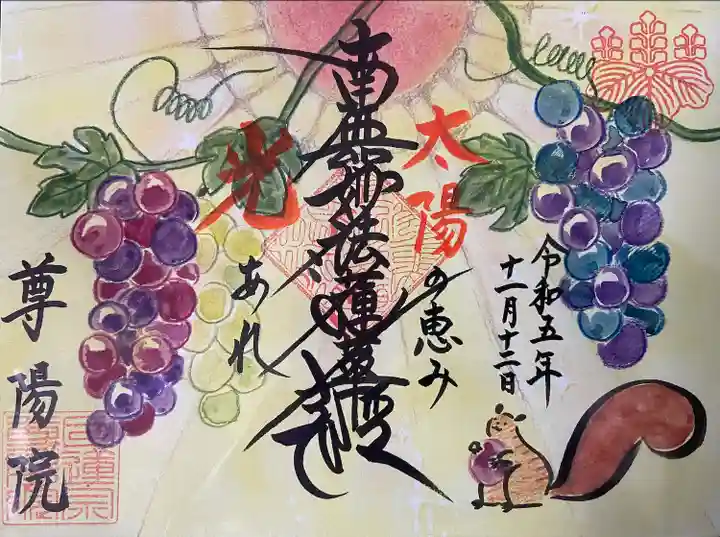 令和五年
十一月十二日
太陽の恵み
南無妙法蓮華経
光あれ
尊陽院
日蓮宗